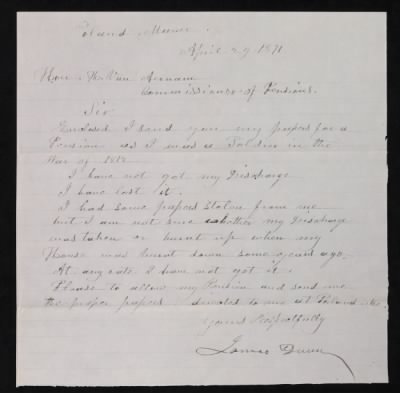 Poland Maine
April 29 1871
Hon. H. Van Aernam
Commissioner of Pensions.
Sir
Enclosed I send you my papers for a
Pension as I was a Soldier in the
War of 1812
I have not got my Discharge
I have lost it.
I had some papers Stolen from me
but I am not sure whether my Discharge
was taken or burnt up when my
House was burnt down some years ago.
At any rate I have not got it.
Please to allow my Pension and send me
the proper papers directed to me at Poland Me
Yours Respectfully
James